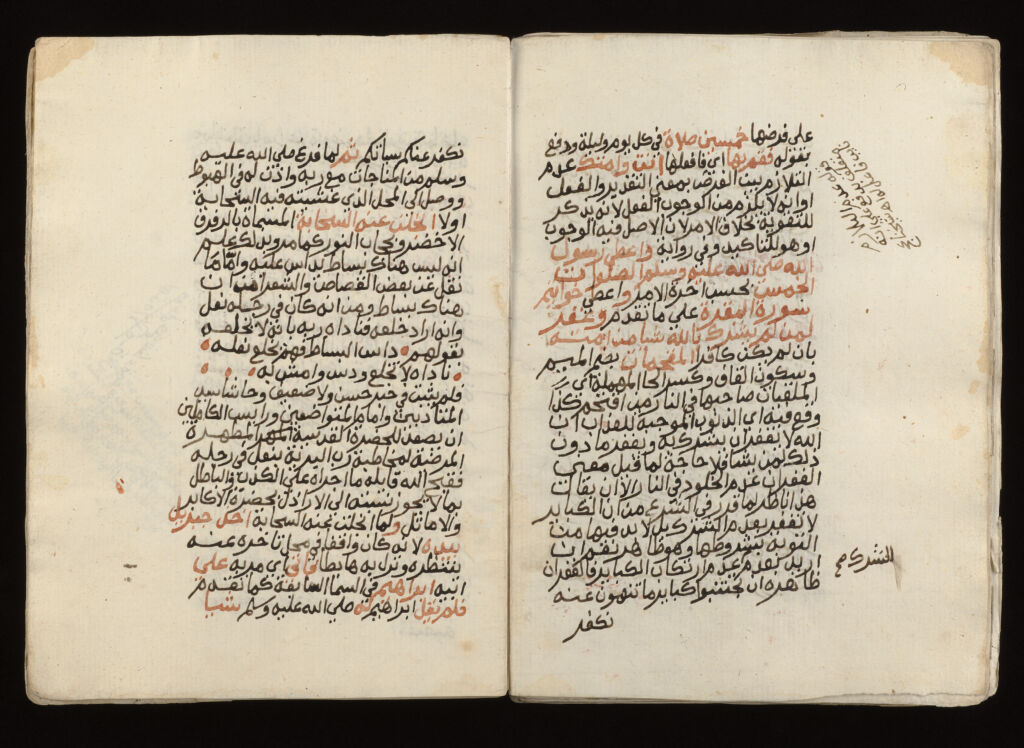 على فرضها خمسين صلاة في كل يوم وليلة ودفع
بقوله فقم بها اي فافعلها انت وامتك عدم
التلازم بين الفرض بمعنى التقدير والفعل
اوانه لا يلزم من الوجوب الفعل لانه يذكر
للتقوية بخلاف الامر لان الاصل فيه الوجوب
او هو للتاكيد وفي رواية واعطي رسول
الله صلى الله عليه وسلم الصلوات
الخمس بحسب اخرة الامر واعطي خواتيم
سورة البقرة على ما تقدم وغفر
لمن لم يشرك بالله شيا من امته
بان لم يكن كافرا المقحمات بضم الميم
وسكون القاف وكسر الحا المهملة اي
الملقيات صاحبها في النار من اقتحم كذا
وقع فيه اي الذنوب الموجبة للعذاب ان
الله لا يغفر ان يشرك به ويغفر ما دون
ذلك لمن يشا فلا حاجة لما قيل معنى
الغفران عدم الخلود في النار الا ان يقال
هذا ناظر لما قرر في الشرع من ان الكباير
لا تغفر بعدم الشرك بل لا بد فيها من
التوبة بشروطها وهو ظاهر نعم ان
اريد بعدم عدم ارتكاب الكباير فالغفران
ظاهر ان تجتنبوا كباير ما تنهون عنه
نكفر
الشرك صح
نكفر عنكم سياتكم ثم لما فرغ صلى الله عليه
وسلم من المناجات مع ربه واذن له في الهبوط
ووصل الى المحل الذي غشيته فيه السحابة
اولا انجلت عنه السحابة المسماة بالرفرف
الاخضر وبحجاب النور كما مر وبذلك علم
انه ليس هناك بساط يداس عليه واما ما
نقل عن بعض القصاص والشعرا من ان
هناك بساط ومن انه كان في رجله نعل
وانه اراد خلعه فناداه ربه بانه لا تخلعه
بقولهم داس البساط فهم بخلع نعله
ناداه لا تخلع ودس وامش له
فلم يثبت في خبر حسن ولا ضعيف وحاشا سيد
المتادبين وامام المتواضعين ورايس الكاملين
ان يصعد للحضرة القدسية المطهرة
المرضية لمخاطبة رب البرية بنعل في رجله
فقبح الله قايله ما اجراه على الكذب والباطل
بما لا يجوز نسبته الى الاراذل بحضرة الاكابر
والاماثل ولما انجلت عنه السحابة اخذ جبريل
بيده لانه كان واقفا في محل تاخره عنه
ينتظره ونزل به هابطا فاتى اي مر به على
ابيه ابراهيم في السما السابعة كما تقدم
فلم يقل ابراهيم له صلى الله عليه وسلم شيا